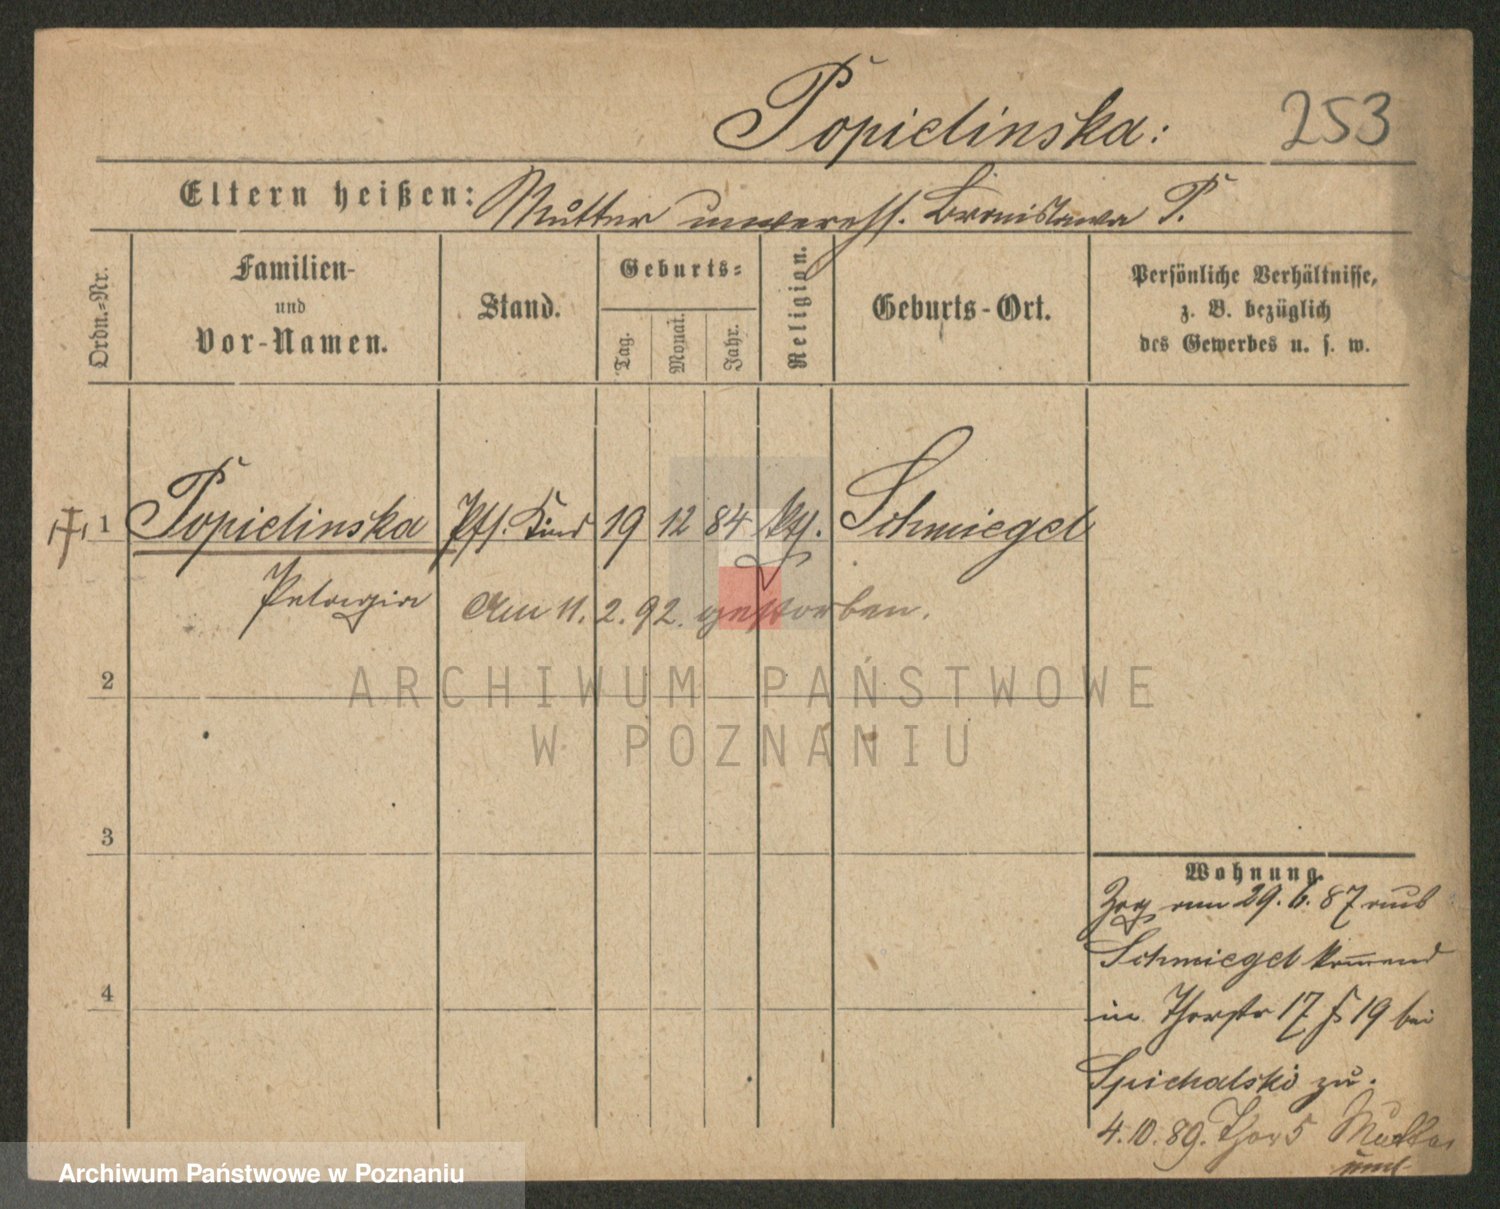 Popielinska:
253
Eltern heißen: Mutter unverehl. Bronislawa P.
Ordn.-Nr.
Familien-
und
Vor-Namen.
Stand.
Geburts-
Tag.
Monat.
Jahr.
Religion.
Geburts-Ort.
Persönliche Verhältnisse,
z. B. bezüglich
des Gewerbes u. s. w.
1 Popielinska Pfl. Kind 19 12 84 kth. Schmiegel
Pelagia Am 11. 2. 92. gestorben.
2
3
4
Wohnung.
Zog am 29. 6. 87 aus
Schmiegel kommend
in Thorstr 17 19 bei
Spichalski zu.
4. 10. 89. Thor 5 Mutter
ARCHIWUM PAŃSTWOWE
W POZNANIU
Archiwum Państwowe w Poznaniu